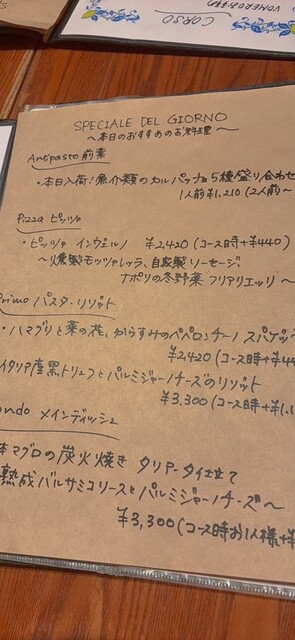 CORSO
VOMEROおすすめ
SPECIALE DEL GIORNO
～本日のおすすめのお料理～
Antipasto 前菜
・本日入荷!魚介類のカルパッチョ5種盛り合わせ
1人前¥1,210(2人前～
Pizza ピッツァ
・ピッツァ インヴェルノ ¥2,420(コース時+¥440)
～燻製モッツァレッラ、自家製ソーセージ、
ナポリの冬野菜"フリアリエッリ"～
Primo パスタ・リゾット
・ハマグリと菜の花、からすみのペペロンチーノ スパゲッ
¥2,420(コース時+¥44
イタリア産黒トリュフとパルミジャーノチーズのリゾット
¥3,300(コース時+¥1,
ondo メインディッシュ
本マグロの炭火焼き タリアータ仕立て
熟成バルサミコソースとパルミジャーノチーズ～
¥3,300(コース時お1人様+¥